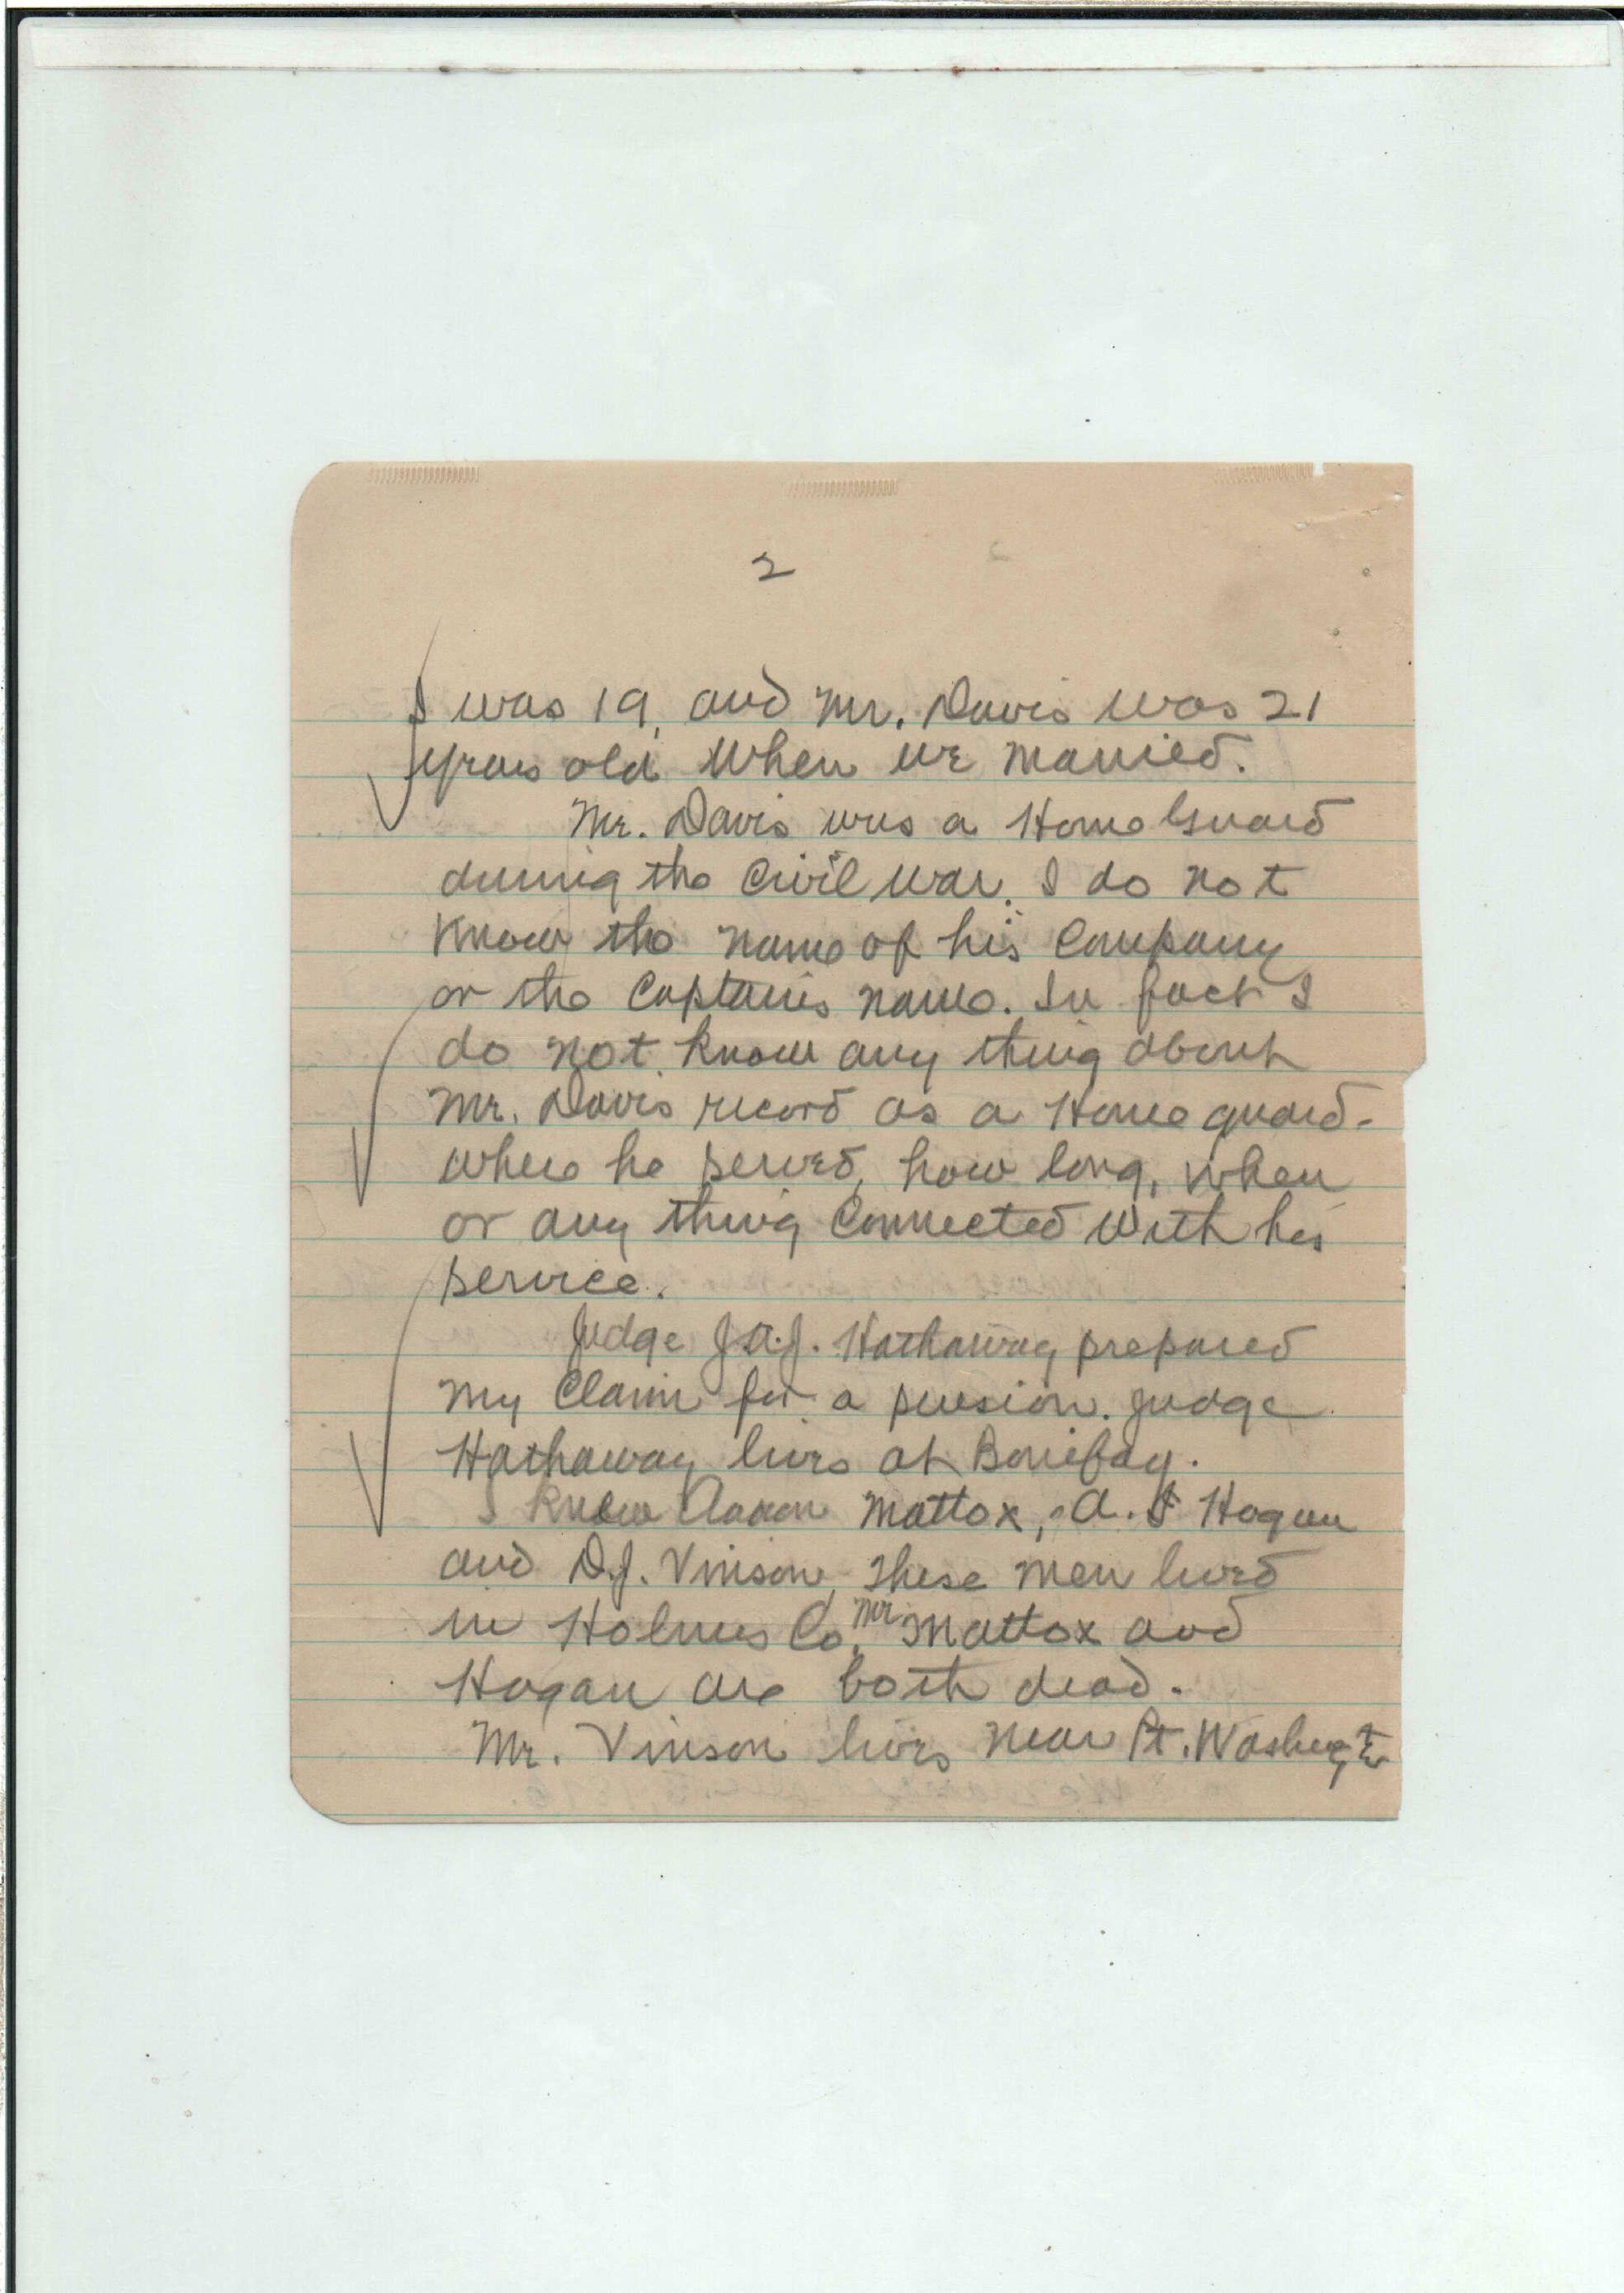 2
I was 19, and Mr. Davis was 21
years old when we married.
Mr. Davis was a Home Guard
during the Civil War. I do not
know the name of his Company
or the Captains name. In fact I
do not know any thing about
Mr. Davis record as a Home guard-
where he served, how long, when
or any thing connected with his
service.
Judge J.A.J. Hathaway prepared
my claim for a pension. Judge
Hathaway lives at Bonifay.
I knew Aaron Mattox, A. Hogan
and D.J. Vinson, These men lived
in Holmes Co. Mr Mattox and
Hogan are both dead.
Mr. Vinson lives near Pt. Washington